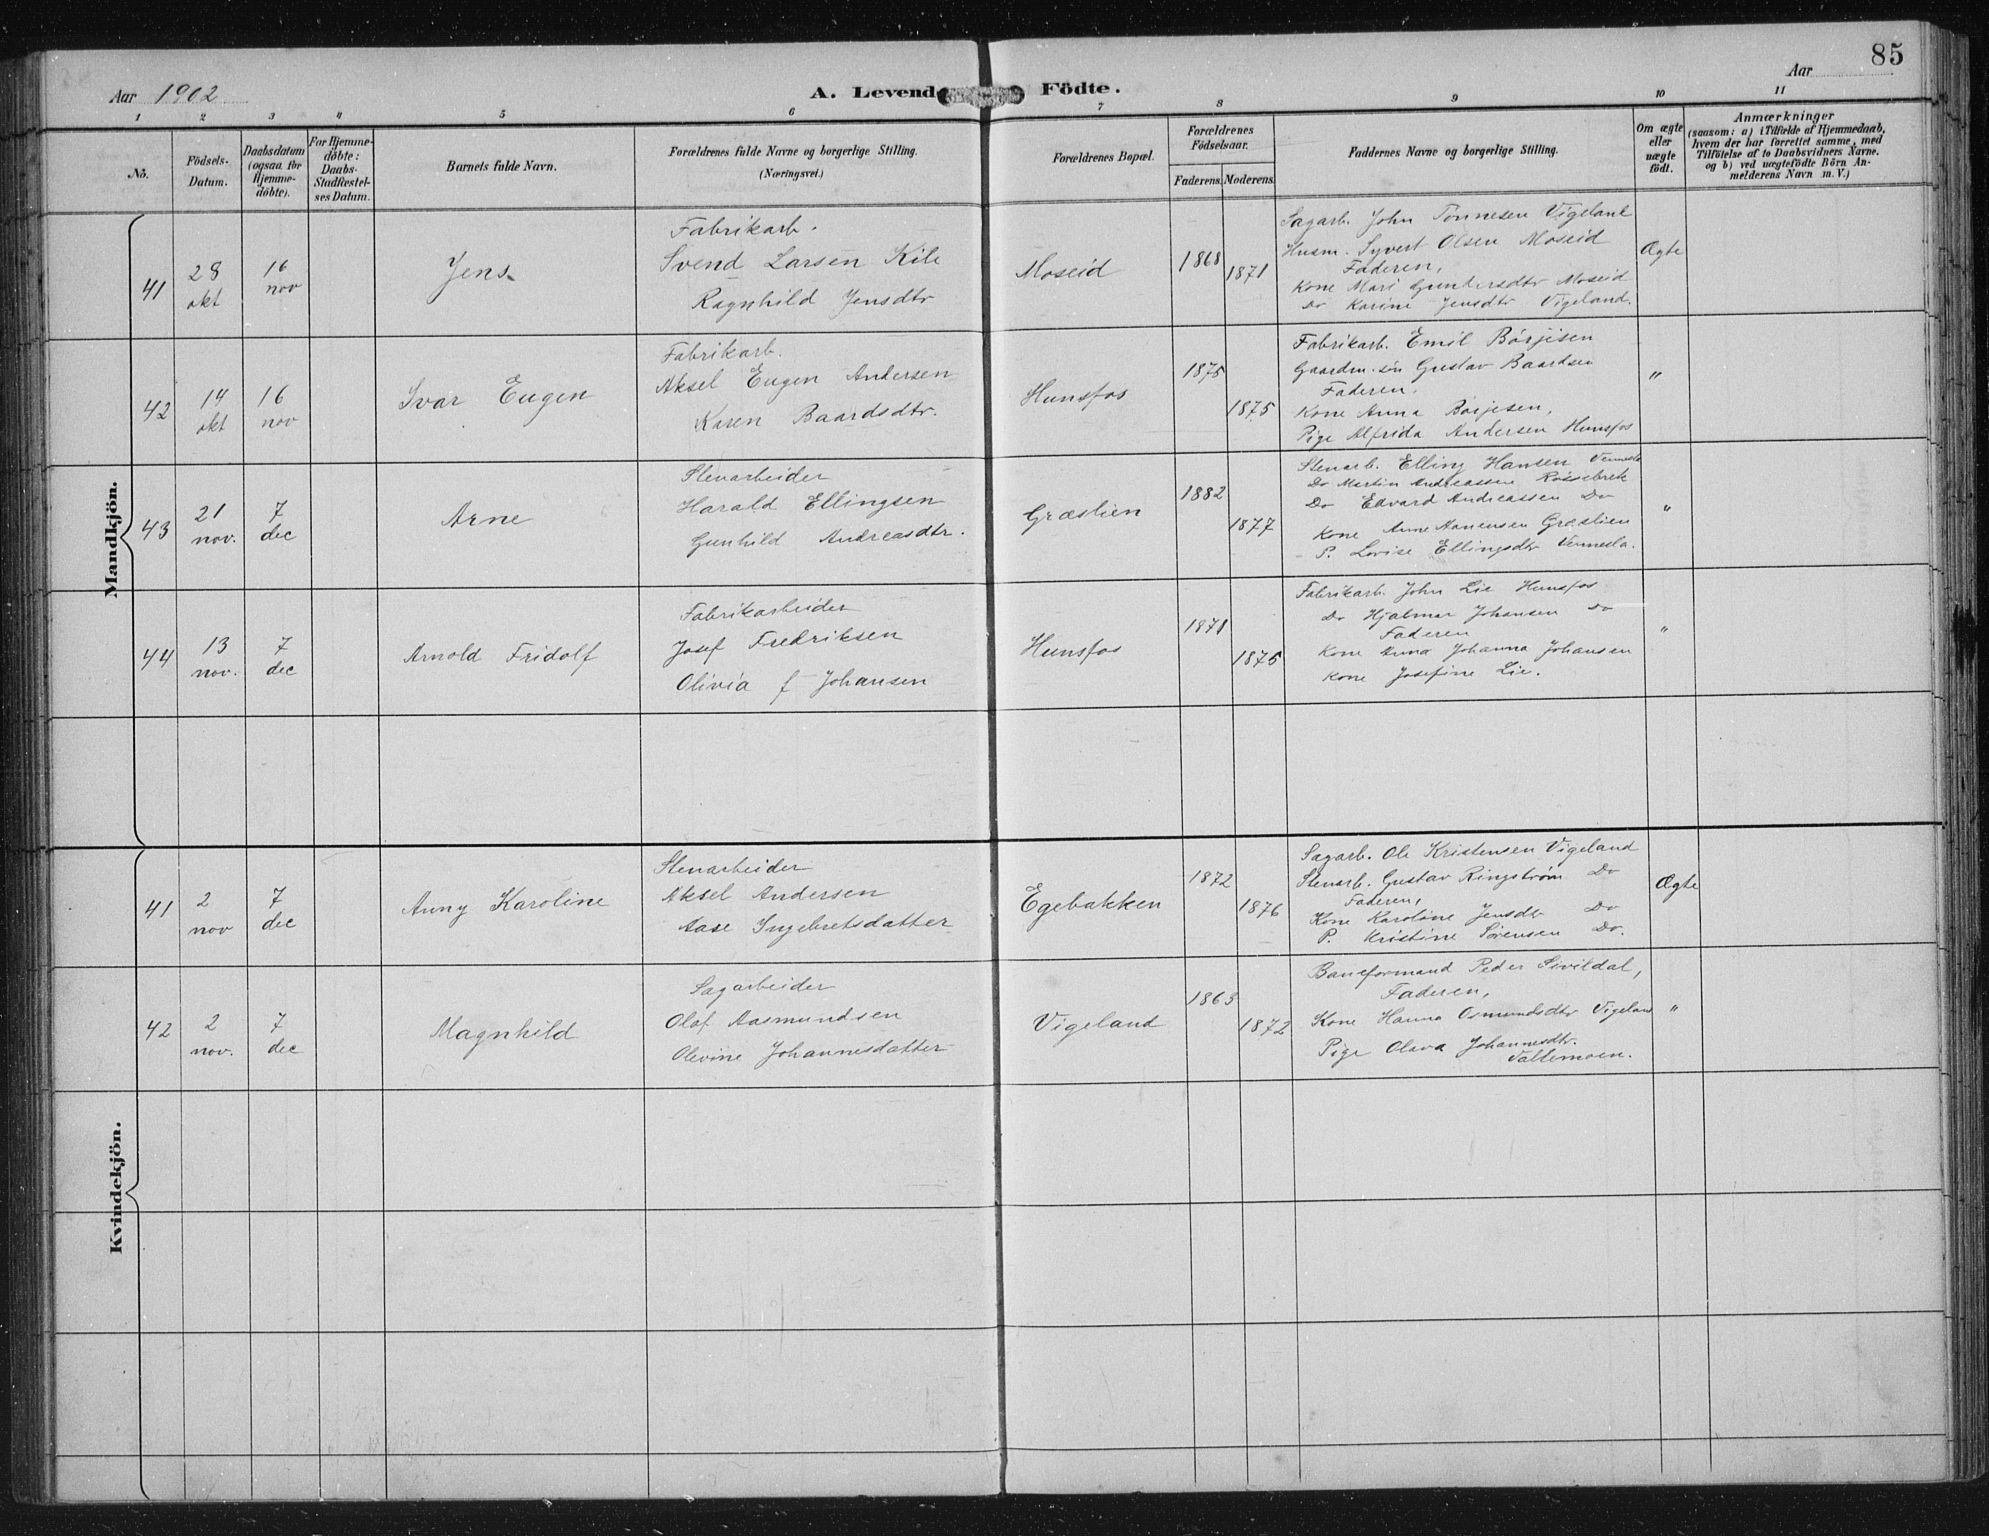 85
Aar 1902
A. Levende Födte.
Aar
1 2 3 4 5 6 7 8 9 10 11
No.
Födsels-Datum.
Daabsdatum (ogsaa for Hjemme-döbte).
For Hjemme-döbte: Daabs-Stadfæstel-ses Datum.
Barnets fulde Navn.
Forældrenes fulde Navne og borgerlige Stilling.
(Næringsvei.)
Forældrenes Bopæl.
Forældrenes Födselsaar.
Faderens. Moderens.
Faddernes Navne og borgerlige Stilling.
Om ægte eller uægte födt.
Anmærkninger
(saasom: a) i Tilfælde af Hjemmedaab,
hvem der har forrettet samme, med
Tilföielse af to Daabsvidners Navne.
og b) ved uægtefödte Börn An-
melderens Navn m. V.)
Mandkjön.
41
28 okt
16 nov
Jens
Fabrikarb.
Svend Larsen Kile
Ragnhild Jensdtr
Moseid
1868
1871
Sagarb. John Tönnesen Vigeland
Husm. Syvert Olsen Moseid
Faderen,
Kone Mari Guntersdtr Moseid
Do Karine Jensdtr Vigeland.
Ægte
42
14 okt
16 nov
Ivar Eugen
Fabrikarb.
Aksel Eugen Andersen
Karen Baardsdtr.
Hunsfos
1875
1875
Fabrikarb. Emil Börjesen
Gaardm. sön Gustav Baardsen
Faderen.
Kone Anna Börjesen,
Pige Alfrida Andersen Hunsfos
"
43
21 nov.
7 dec
Arne
Stenarbeider
Harald Ellingsen
Gunhild Andreasdtr.
Græslien
1882
1877
Stenarb. Elling Hansen Vennesla
Do Martin Andreassen Rossebrek
Do Edvard Andreassen Do
Kone Anne Græslien
P. Lovise Ellingsdtr Vennesla.
"
44
13 nov.
7 dec
Arnold Fridolf
Fabrikarbeider
Josef Fredriksen
Olivia f Johansen
Hunsfos
1871
1875
Fabrikarb. John Lie Hunsfos
Do Hjalmar Johansen Do
Faderen
Kone Anna Johanna Johansen
Kone Josefine Lie.
"
Kvindekjön.
41
2 nov
7 dec
Anny Karoline
Stenarbeider
Aksel Andersen
Aase Ingebretsdatter
Egebakken
1872
1876
Sagarb. Ole Kristensen Vigeland
Stenarb. Gustav Ringström Do
Faderen,
Kone Karoline Jensdtr Do
P. Kristine Sörensen Do.
Ægte
42
2 nov.
7 dec
Magnhild
Sagarbeider
Olaf Aasmundsen
Olevine Johannesdatter
Vigeland
1863
1872
Baneformand Peder Sivildal,
Faderen,
Kone Hanna Osmundsdtr Vigeland
Pige Olava Johannesdtr.
"